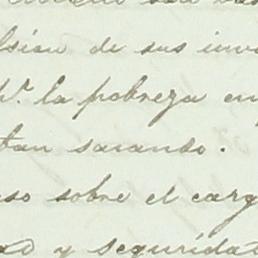 lsion de sus inv
Pr. la pobreza en
tan sacando.
so sobre el carg
ad y seguridad